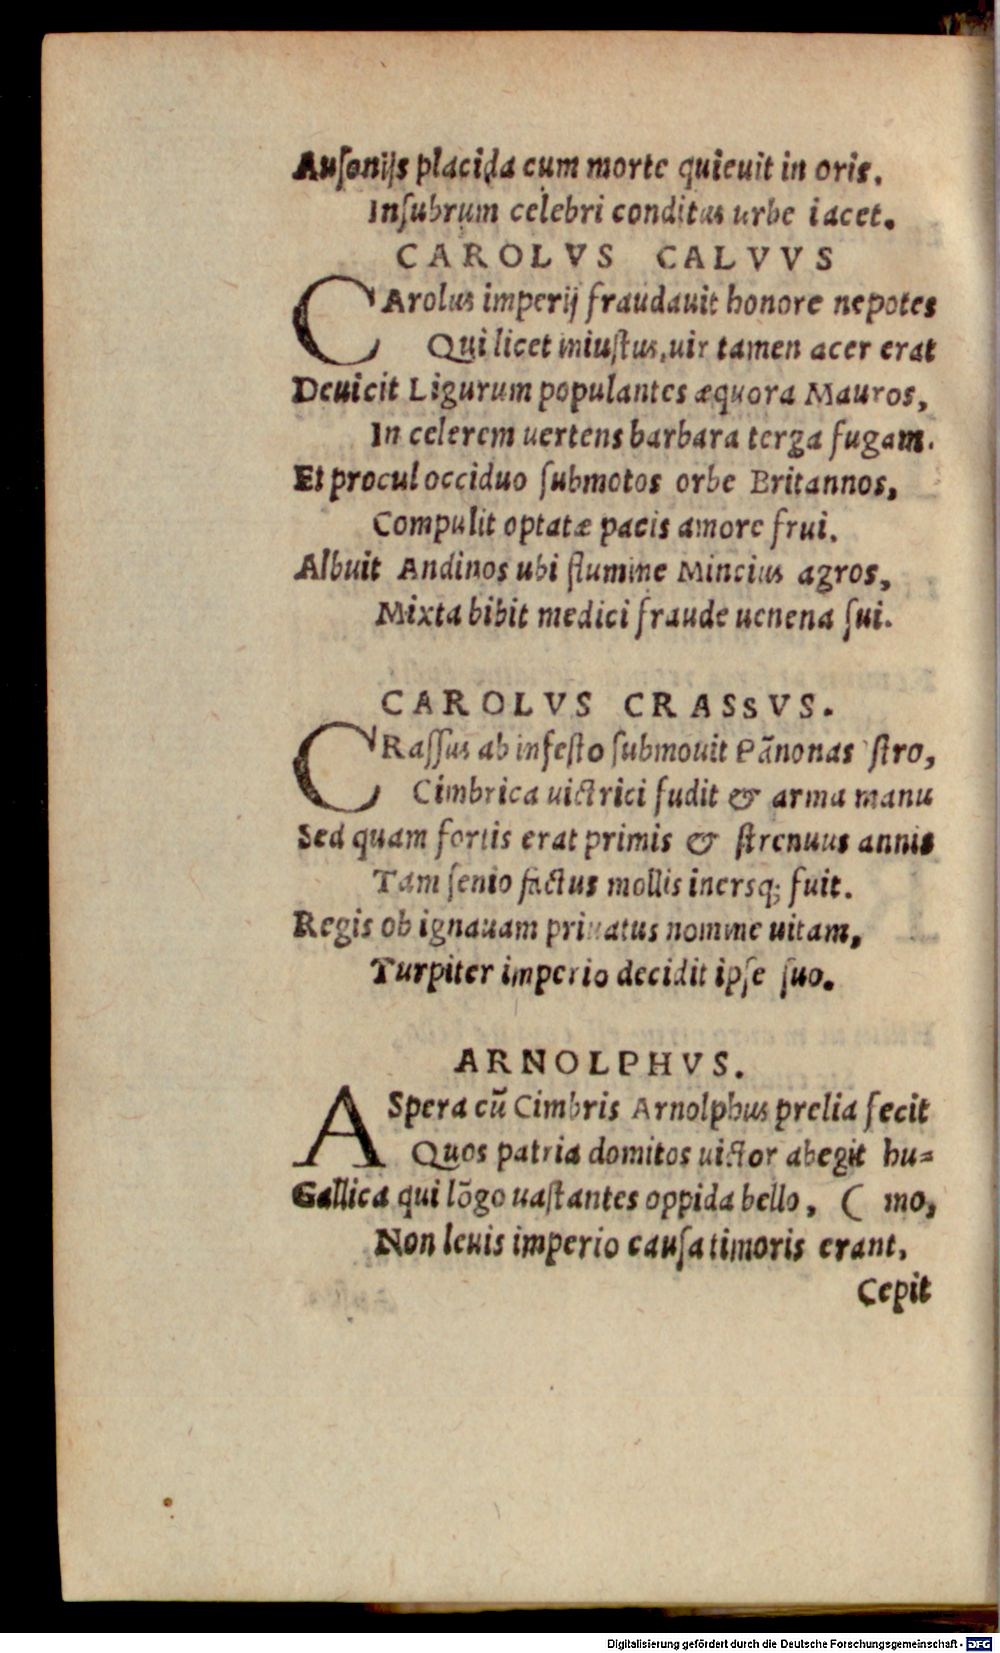 Auſonijs placida cum morte quieuit in oris.
Inſubrum celebri conditus urbe iacet.
CAROLVS CALVVS
CArolus imperij fraudauit honore nepotes
Qui licet iniuſtus, uir tamen acer erat
Deuicit Ligurum populantes æquora Mauros,
In celerem uertens barbara terga fugam.
Et procul occiduo ſubmotos orbe Britannos,
Compulit optatæ pacis amore frui.
Albuit Andinos ubi flumine Mincius agros,
Mixta bibit medici fraude uenena ſui.
CAROLVS CRASSVS.
CRaſſus ab infeſto ſubmouit Pānonas ſtro,
Cimbrica uictrici fudit & arma manu
Sed quam fortis erat primis & ſtrenuus annis
Tam ſenio factus mollis inersq; fuit.
Regis ob ignauam priuatus nomine uitam,
Turpiter imperio decidit ipſe ſuo.
ARNOLPHVS.
ASpera cū Cimbris Arnolphus prelia fecit
Quos patria domitos uictor abegit hu=
Gallica qui lōgo uaſtantes oppida bello, ( mo,
Non leuis imperio cauſa timoris erant.
Cepit
Digitalisierung gefördert durch die Deutsche Forschungsgemeinschaft - DFG